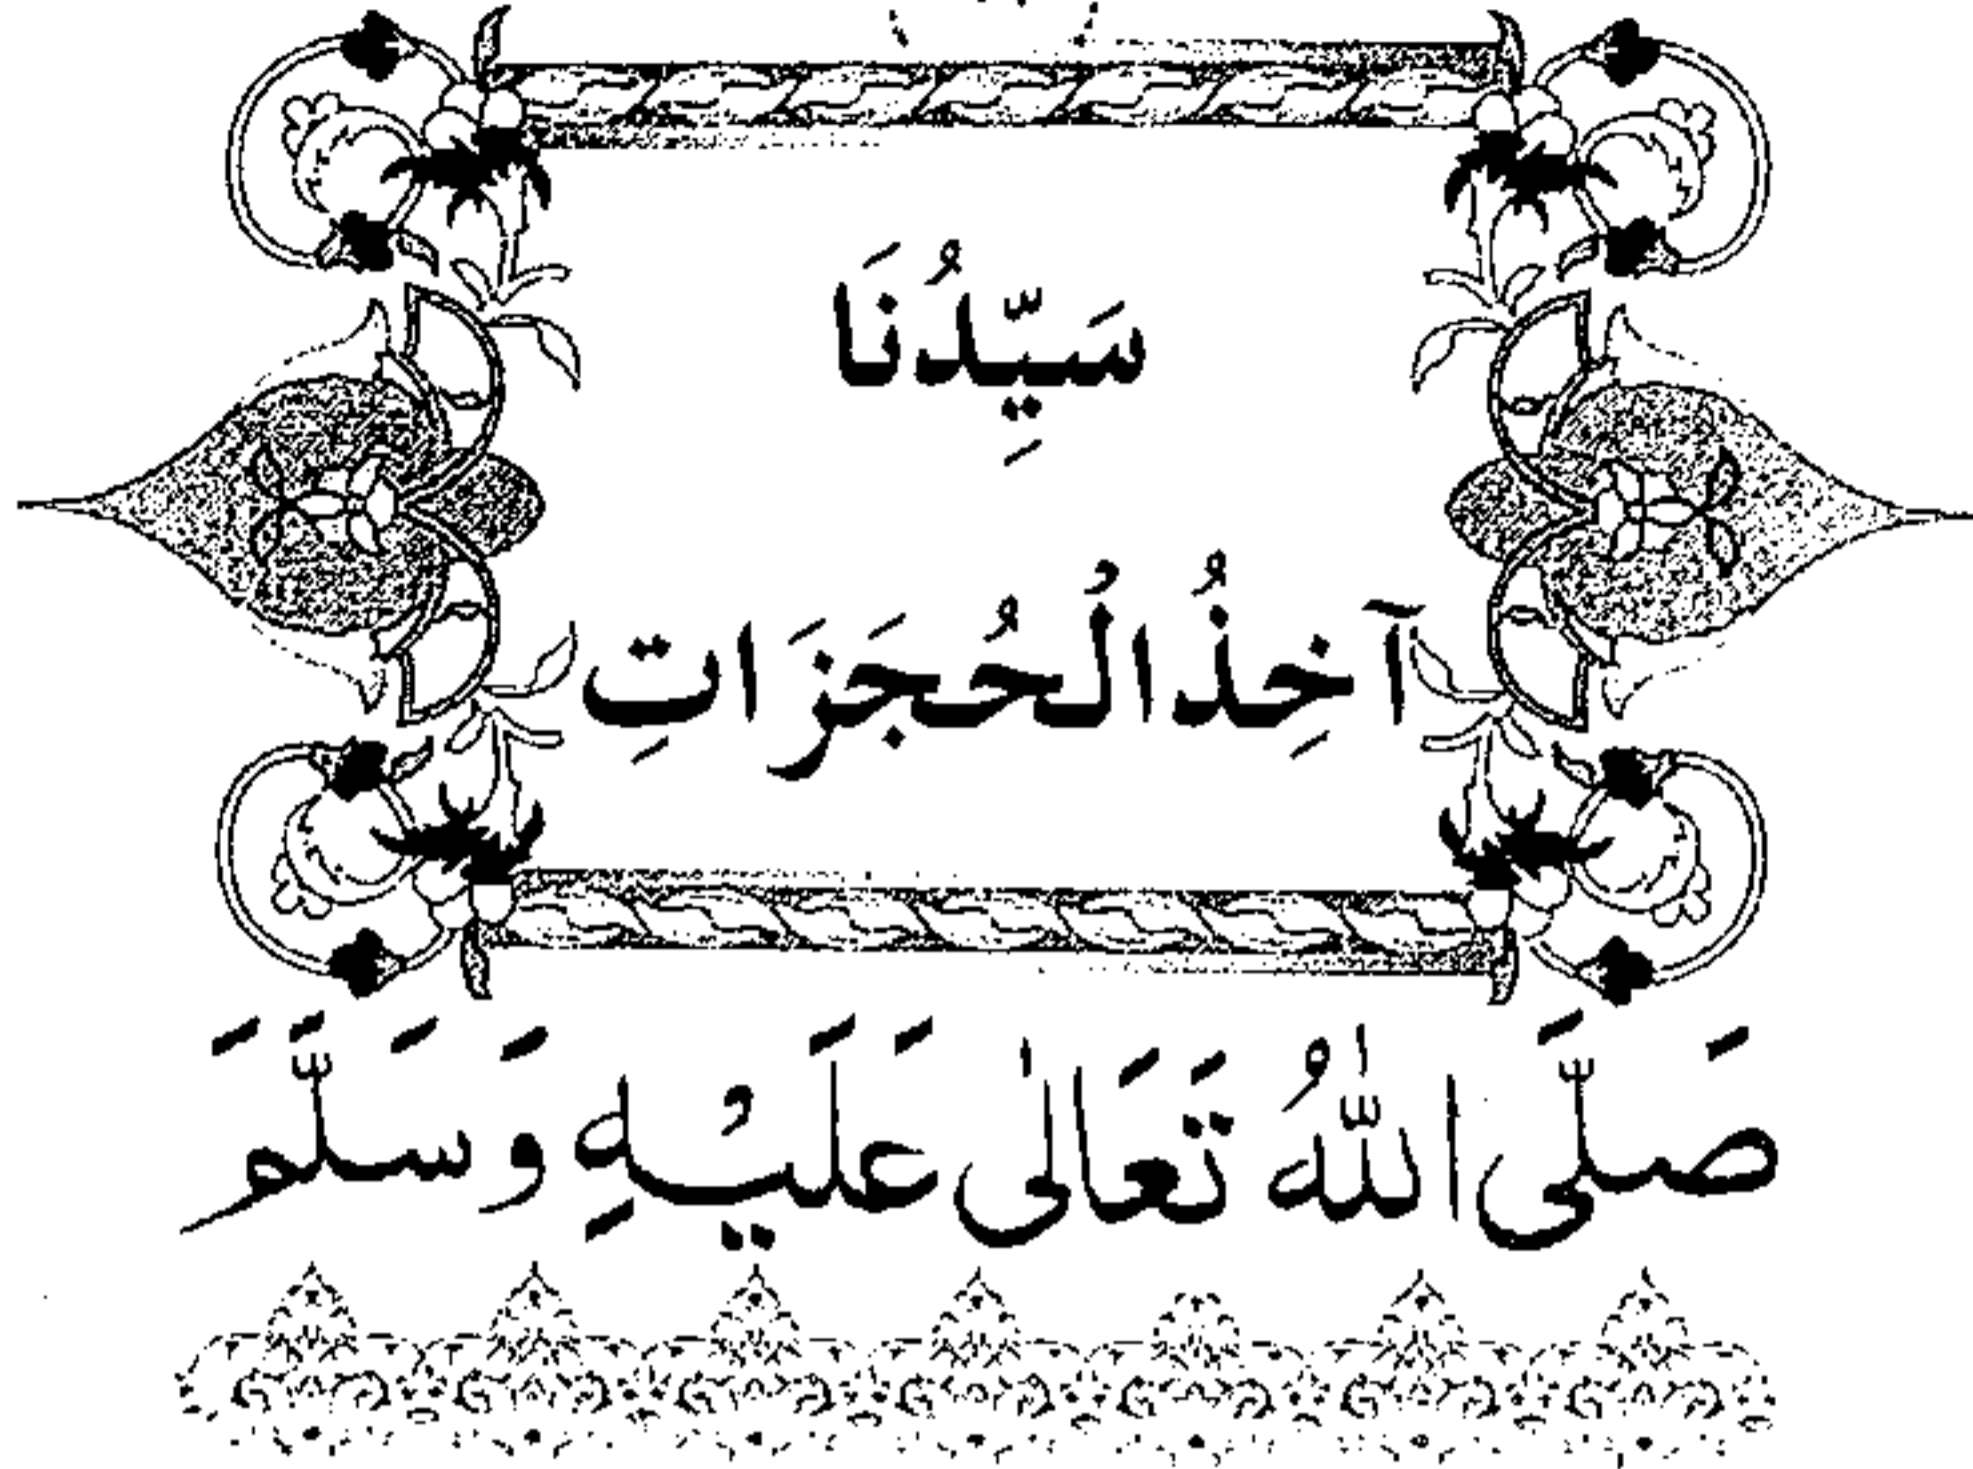 سَيِّدُنَا
آخِذُ الْحُجَزَاتِ
صَلَّی اللّٰہُ تَعَالٰی عَلَیْہِ وَسَلَّمَ